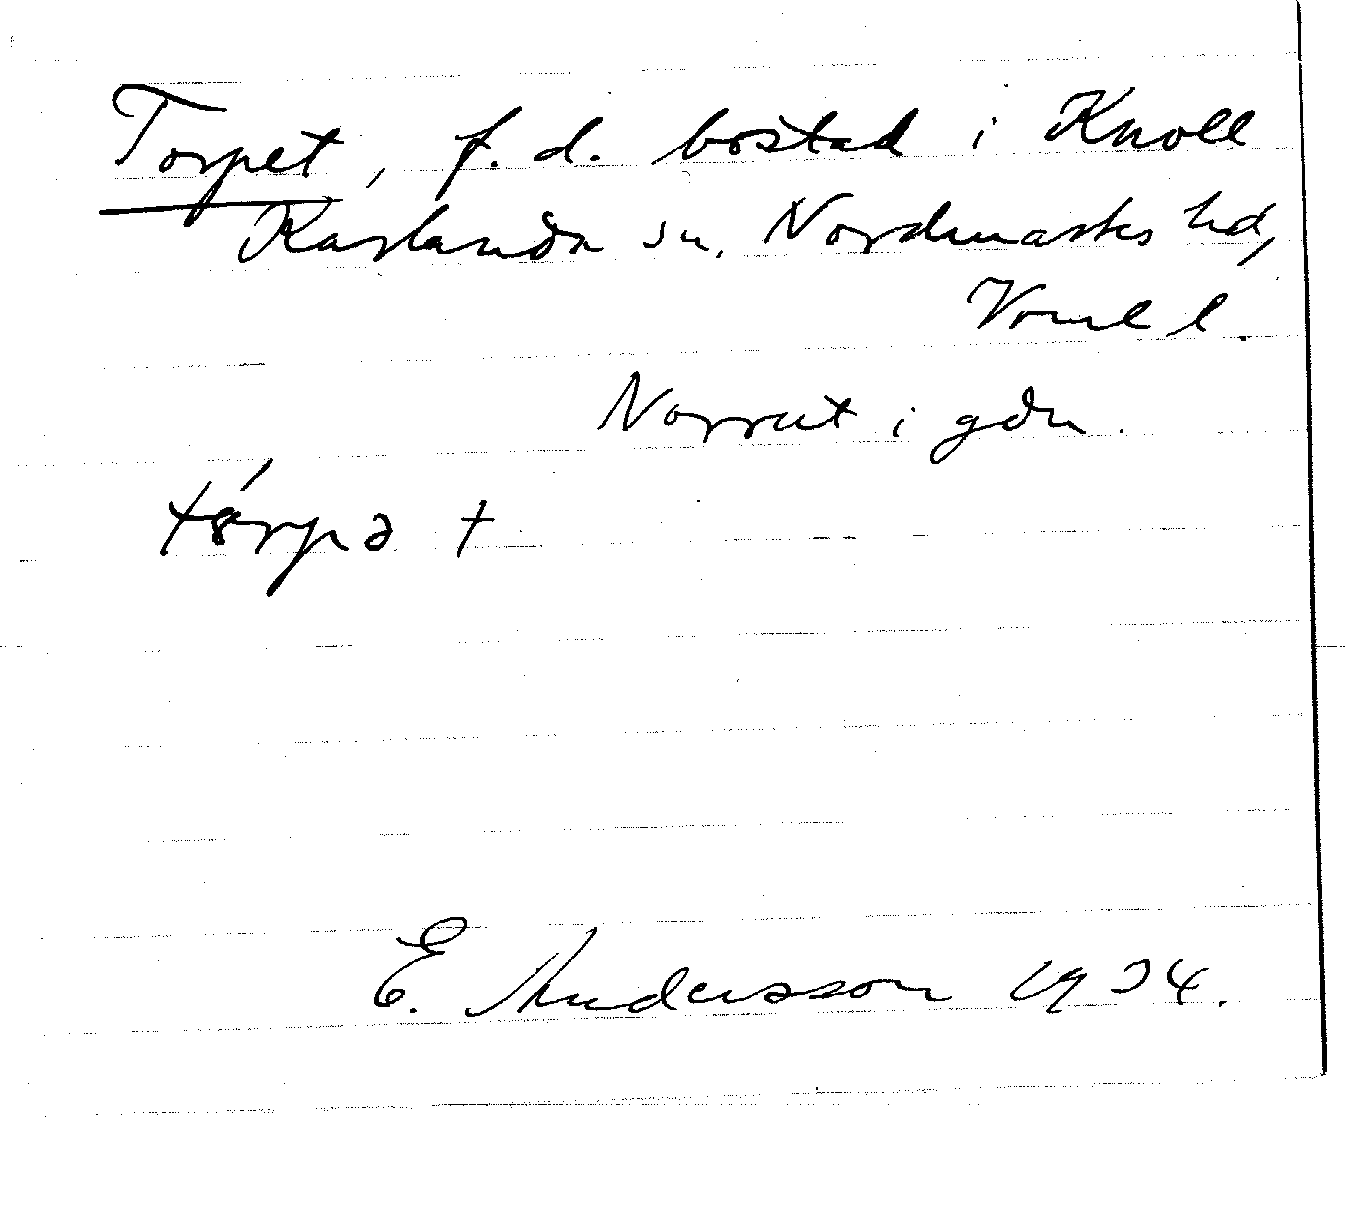 Torpet, f.d. bostad i Knoll
Karlanda sn. Nordmarks hd,
Vrml l.
Norrut i gdn.
tørpə t
E. Andersson 1934.